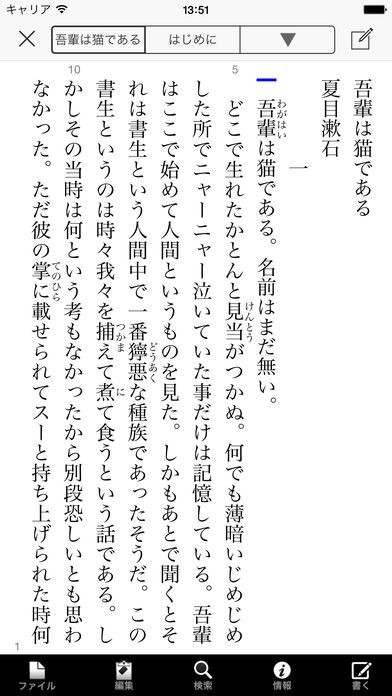 キャリア 13:51
吾輩は猫である はじめに ▼
5 10
吾輩は猫である
夏目漱石
一
わがはい
吾輩は猫である。名前はまだ無い。
けんとう
どこで生れたかとんと見当がつかぬ。何でも薄暗いじめじめ
した所でニャーニャー泣いていた事だけは記憶している。吾輩
はここで始めて人間というものを見た。しかもあとで聞くとそ
どうあく
れは書生という人間中で一番獰悪な種族であったそうだ。この
つかま に
書生というのは時々我々を捕えて煮て食うという話である。し
かしその当時は何という考もなかったから別段恐しいとも思わ
てのひら
なかった。ただ彼の掌に載せられてスーと持ち上げられた時何
1
ファイル 編集 検索 情報 書く